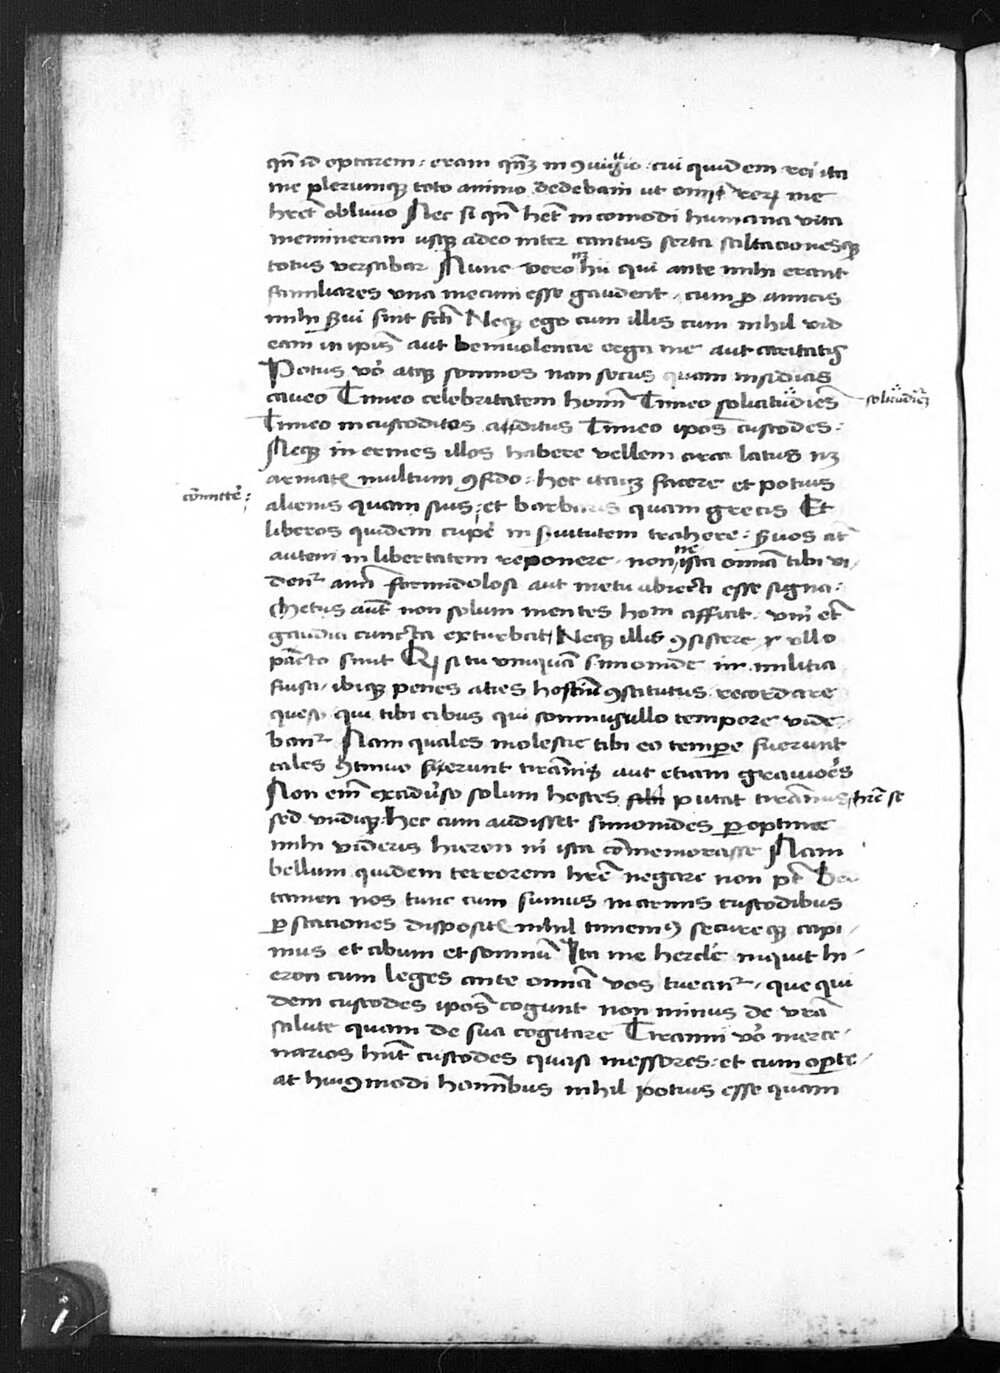 qn̄ id optarem: eram qn̄qȝ in ꝯuiuio: cui quidem rei ita
me plerumqȝ toto animo dedebam ut om̄i rerꝝ me
hr̄et obliuio Nec si qn̄ het̄ incomodi humana vita
memineram usqȝ adeo inter cantus serta saltacionesqȝ
totus versabar Nunc vero hii qui ante mihi erant
familiares vna mecum esse gaudent, cum ꝓ amicis
mihi ẜui sint fc̄ti Neqȝ ego cum illis cum nihil vid
eam in ipis̄ aut beniuolencie erga me aut caritatis
Potus vo᷎ atqȝ somnos non secus quam insidias
caueo Timeo celebritatem homi᷎m Timeo solicitudies̄ solitudies̄
Timeo incustoditos aditus Timeo ipos̄ custodes:
Neqȝ inermes illos habere vellem circa latus nȝ
armatꝭ multum ꝯfido: hec itaqȝ facere et potius
com̄itte᷎:
alienis quam suis: et barbaris quam grecis Et
liberos quidem cupe᷎ in ẜuitutem trahere: ẜuos at᷎
autem in libertatem reponere, non ne ista omīa tibi vi,
dent᷎ animī formidolosi aut metu abiecti esse signa:
Metus aut̄ non solum mentes hom̄ afficit: vm᷎ et᷎
gaudia cuncta exturbat Neqȝ illis ꝯsistere vllo
pacto sinit Qꝫ si tu vnquā simonide in militia
fuisti, ibiqȝ penes acies hostiū ꝯstitutus recordare
queso qui tibi cibus qui somnus illo tempore vide,
bant᷎ Nam quales molestie tibi eo tempore fuerunt
tales ꝯtinuo fuerunt tirannis aut etiam grauiores
Non em̄ exaduẜo solum hostes putat tirannus hr̄e se
sed vndiqȝ: hec cum audisset simonides ꝑoptime
mihi videris hieron in᷎ ista com̄emorasse Nam
bellum quidem terrorem hr̄e negare non pt̄
tamen nos tunc cum sumus in armis custodibus
ꝑ staciones dispositꝭ nihil timemꝰ secureqȝ capi,
mus et cibum et somnū Ita me hercle inquit hi,
eron cum leges ante omīa vos tueant᷎, que qui
dem custodes ipos̄ cogunt non minus de vrā
salute quam de sua cogitare Tiranni vo᷎ merce,
narios hn̄t custodes quasi messores: et cum oꝑte,
at huiꝰmodi homībus nihil potius esse quam